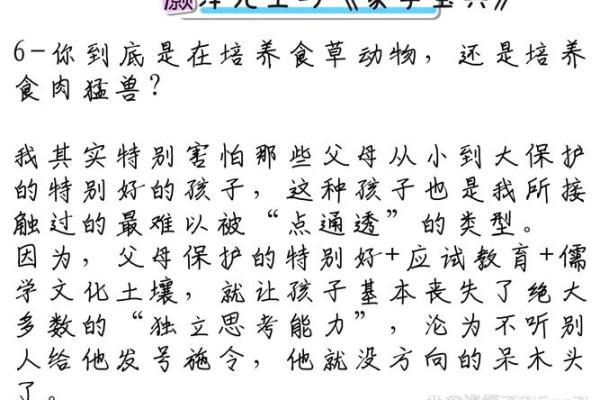 灏泽先生与《亲子宝典》
6-你到底是在培养食草动物，还是培养
食肉猛兽？
我其实特别害怕那些父母从小到大保护
的特别好的孩子，这种孩子也是我所接
触过的最难以被“点通透”的类型。
因为，父母保护的特别好+应试教育+儒
学文化土壤，就让孩子基本丧失了绝大
多数的“独立思考能力”，沦为不听别
人给他发号施令，他就没方向的呆木头
了。